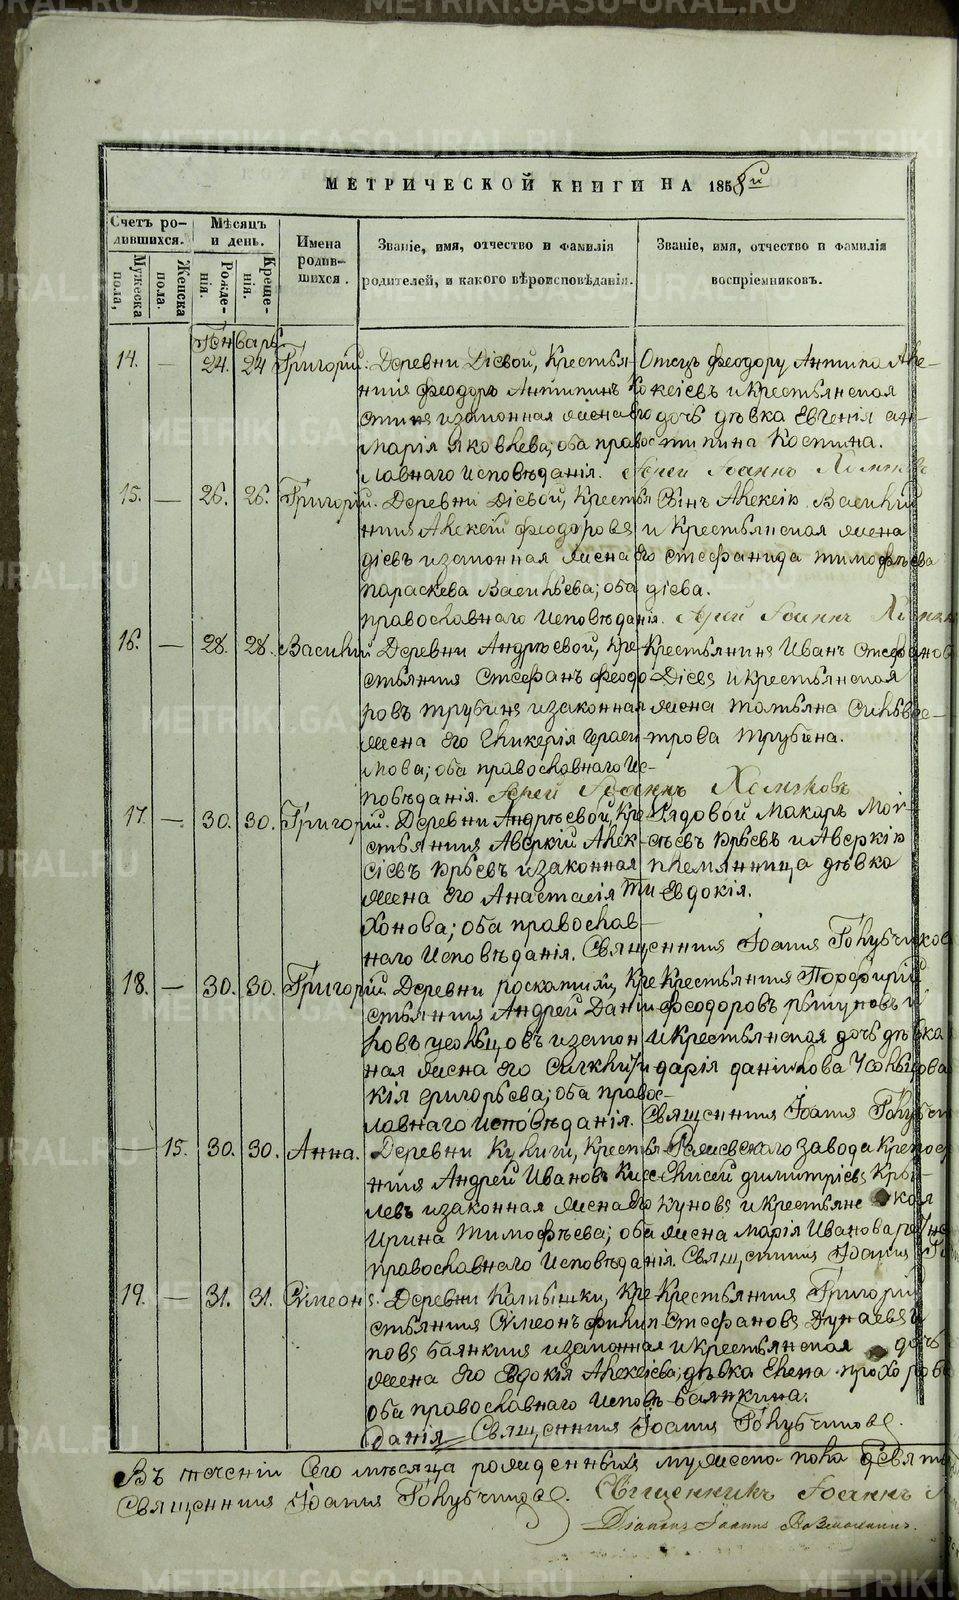 METRIKI.GASO-URAL.RU
МЕТРИЧЕСКОЙ КНИГИ НА 1858й
Счетъ ро-
дившихся.
Мужеска пола,
Женска пола.
Мѣсяцъ и день.
Рожде-нія.
Креще-нія.
Имена родив-шихся.
Званіе, имя, отчество и фамилія родителей, и какого вѣроисповѣданія.
Званіе, имя, отчество и фамилія воспріемниковъ.
Январь
14. — 24. 24 Григорій. Деревни Дієвой, Крестья-
нинъ Феодоръ Антипинъ Ко
стинъ и законная жена его
Марія Яковлева; оба правос
лавнаго исповѣданія.
Отецъ Феодору Антипа Але-
ксіевъ и Крестьянская
дочь дѣвка Евгенія Ан-
типина Костина.
Іерей Іоаннъ Хомяковъ
15. — 26. 26. Григорій. Деревни Дієвой, Крестья
нинъ Алексій Феодоровъ
Дієвъ и законная жена его
Параскева Васильева; оба
православнаго исповѣданія.
Сынъ Алексію Василій
и Крестьянская жена
Стефанида Тимофѣева
Дієва.
Іерей Іоаннъ
16. — 28. 28. Василій Деревни Андрѣевой, Кре-
стьянинъ Стефанъ Феодо-
ровъ Трубинъ и законная
жена его Гликерія Гераси-
мова; оба православнаго ис-
повѣданія.
Крестьянинъ Иванъ Стефанов
Дієвъ и Крестьянская
жена Татьяна Сильвес-
трова Трубина.
Іерей Іоаннъ Хомяковъ
17. — 30. 30. Григорій. Деревни Андрѣевой, Кре-
стьянинъ Аверкій Алек-
сіевъ Юрьевъ и законная
жена его Анастасія Ти-
хонова; оба православ-
наго исповѣданія.
Рядовой Макаръ Мой-
сѣевъ Юрьевъ и Аверкію
племянница дѣвка
Евдокія.
Священникъ Іоаннъ Голубчиков
18. — 30. 30. Григорій. Деревни Роскатихи, Кре
стьянинъ Андрей Дани
ловъ Усольцовъ и закон
ная жена его Сигклити
кія Григорьева; оба право-
лавнаго исповѣданія.
Крестьянинъ Порфирій
Феодоровъ и
Крестьянская дочь дѣвка
Дарія Данилова Усольцова
Священникъ Іоаннъ Голубчи
— 15. 30. 30. Анна. Деревни Кулиги, Крестья
нинъ Андрей Ивановъ Кисе
левъ и законная жена его
Ирина Тимофѣева; оба
православнаго исповѣданія.
завода Крепос
Елисей Димитріевъ
и Крестьянская
жена Марія Иванова
Священникъ Іоаннъ
19. — 31. 31. Симеонъ. Деревни Камышки, Кре
стьянинъ Симеонъ Филип
повъ Баянкинъ и законная
жена его Евдокія Алексіева;
оба православнаго исповѣ
данія
Крестьянинъ Григорій
Стефановъ Дунаевъ и
Крестьянская дочь
дѣвка Елена Прохорова
Баянкина.
Священникъ Іоаннъ Голубчиковъ.
Въ теченіи сего мѣсяца рожденныхъ мужеска пола девят
Священникъ Іоаннъ Голубчиковъ. Священникъ Іоаннъ
Діаконъ Іоаннъ